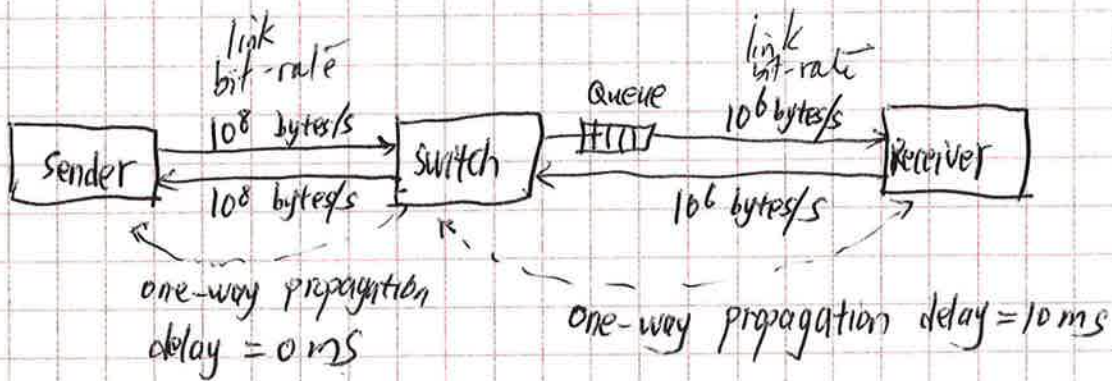 link
bit-rate
10^8 bytes/s
Sender
10^8 bytes/s
Switch
Queue
link
bit-rate
10^6 bytes/s
Receiver
10^6 bytes/s
one-way propagation
delay = 0 ms
one-way propagation delay = 10 ms